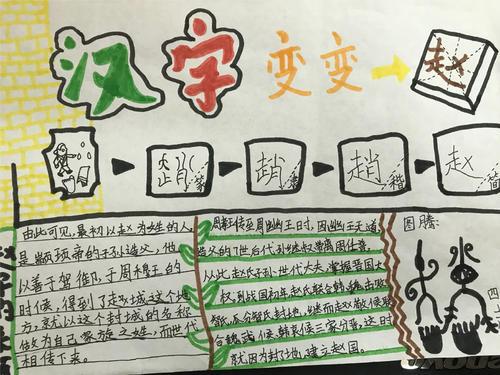 汉字 变变 赵
趙 篆
趙 隶
趙 楷
赵 简
由此可见,最初以赵为姓的人
是颛顼帝的子孙造父,他
以善于驾御,于周穆王的
时候,得到了赵城这个地
方,就以这个封城的名称
做为自己家族之姓,而世代
相传下来。
周朝传至周幽王时,因幽王无道
造父的7世后代孙叔带离周仕晋
从此,赵氏子孙世代大夫,掌握晋国大
权,到战国初年赵氏联合韩魏击败
智,瓜分智氏封地,继而赵敬侯联
合魏武侯、韩哀侯三家分晋,这时
就因为封了地,建立赵国。
图腾:
四